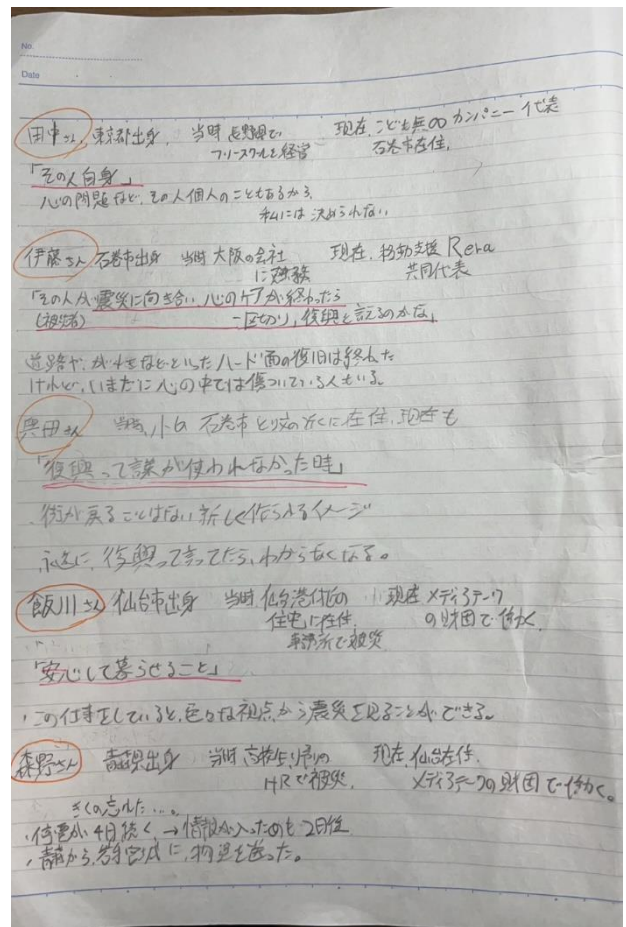 No.
Date
田中さん 東京都出身 当時 長野県で 現在 こども∞カンパニー代表
フリースクールを経営 石巻市在住
「その人自身」
心の問題など、その人個人のこともあるから、
私には決められない
伊藤さん 石巻市出身 当時 大阪の会社 現在、移動支援 Rera
に勤務 共同代表
「その人が震災に向き合い、心のケアが終わったら
(被災者) 一区切り、復興と言えるのかな」
道路や、がれきなどといったハード面の復旧は終わった
けれど、いまだに心の中では傷ついている人もいる。
奥田さん 当時 小6 石巻市 の近くに在住、現在も
「復興って言葉が使われなかった時」
・街が戻ることはない 新しく作られるイメージ
永遠に、復興って言ってたら、わからなくなる。
飯川さん 仙台市出身 当時 仙台港付近の 現在 メディアテーク
住宅に在住 の財団で働く
事務所で被災
「安心して暮らせること」
・この仕事をしていると、色々な視点から震災を見ることができる。
森野さん 青森県出身 当時 高校生 帰りの 現在、仙台在住、
HRで被災、 メディアテークの財団で働く。
きくの忘れた…。
・停電が4日続く → 情報が入ったのも2日後
・青森から、岩手宮城に、物資を送った。